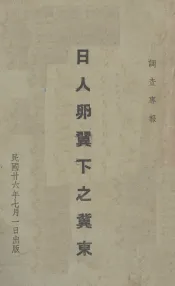 調查專報
日人卵翼下之冀東
民國廿六年七月一日出版